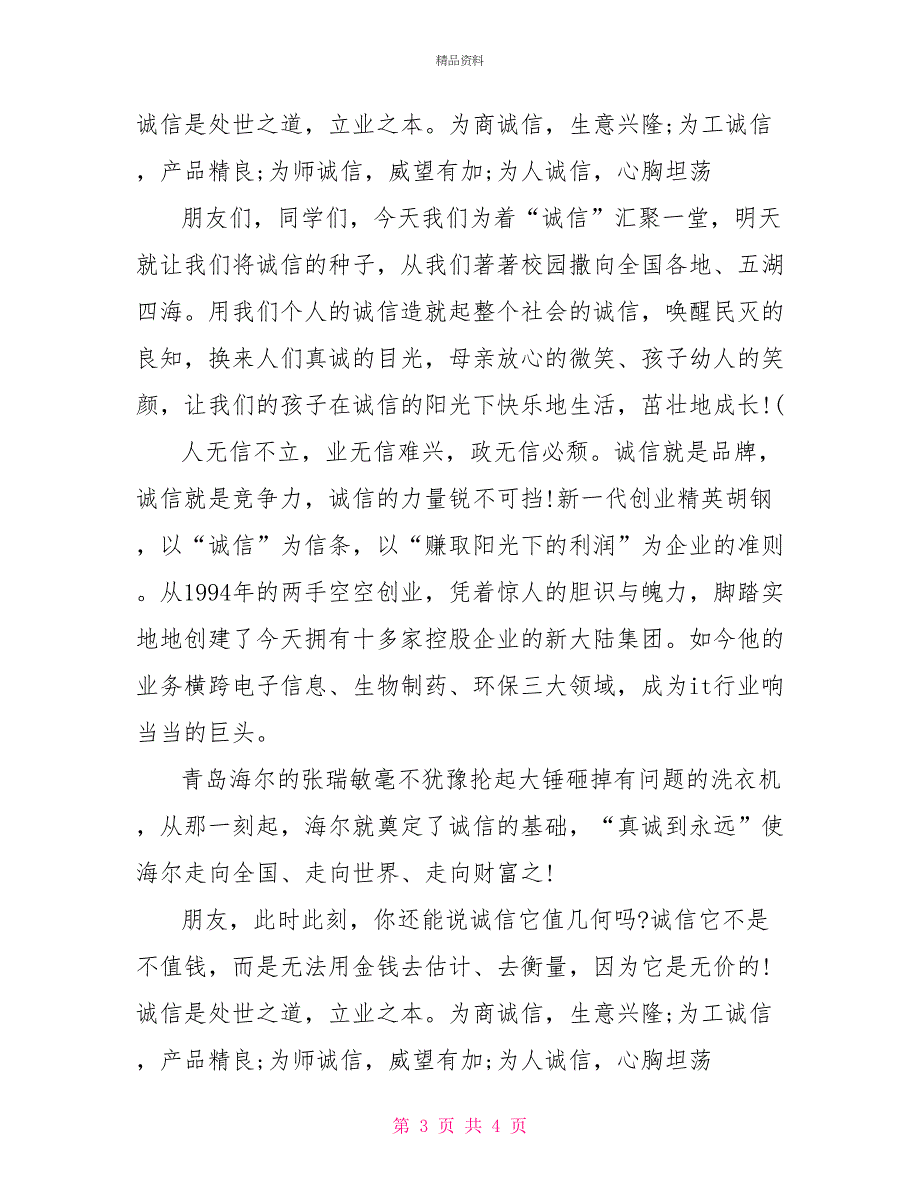 精品资料
诚信是处世之道，立业之本。为商诚信，生意兴隆;为工诚信
，产品精良;为师诚信，威望有加;为人诚信，心胸坦荡
朋友们，同学们，今天我们为着“诚信”汇聚一堂，明天
就让我们将诚信的种子，从我们著著校园撒向全国各地、五湖
四海。用我们个人的诚信造就起整个社会的诚信，唤醒民灭的
良知，换来人们真诚的目光，母亲放心的微笑、孩子幼人的笑
颜，让我们的孩子在诚信的阳光下快乐地生活，茁壮地成长!(
人无信不立，业无信难兴，政无信必颓。诚信就是品牌，
诚信就是竞争力，诚信的力量锐不可挡!新一代创业精英胡钢
，以“诚信”为信条，以“赚取阳光下的利润”为企业的准则
。从1994年的两手空空创业，凭着惊人的胆识与魄力，脚踏实
地地创建了今天拥有十多家控股企业的新大陆集团。如今他的
业务横跨电子信息、生物制药、环保三大领域，成为it行业响
当当的巨头。
青岛海尔的张瑞敏毫不犹豫抡起大锤砸掉有问题的洗衣机
，从那一刻起，海尔就奠定了诚信的基础，“真诚到永远”使
海尔走向全国、走向世界、走向财富之!
朋友，此时此刻，你还能说诚信它值几何吗?诚信它不是
不值钱，而是无法用金钱去估计、去衡量，因为它是无价的!
诚信是处世之道，立业之本。为商诚信，生意兴隆;为工诚信
，产品精良;为师诚信，威望有加;为人诚信，心胸坦荡
第 3 页 共 4 页